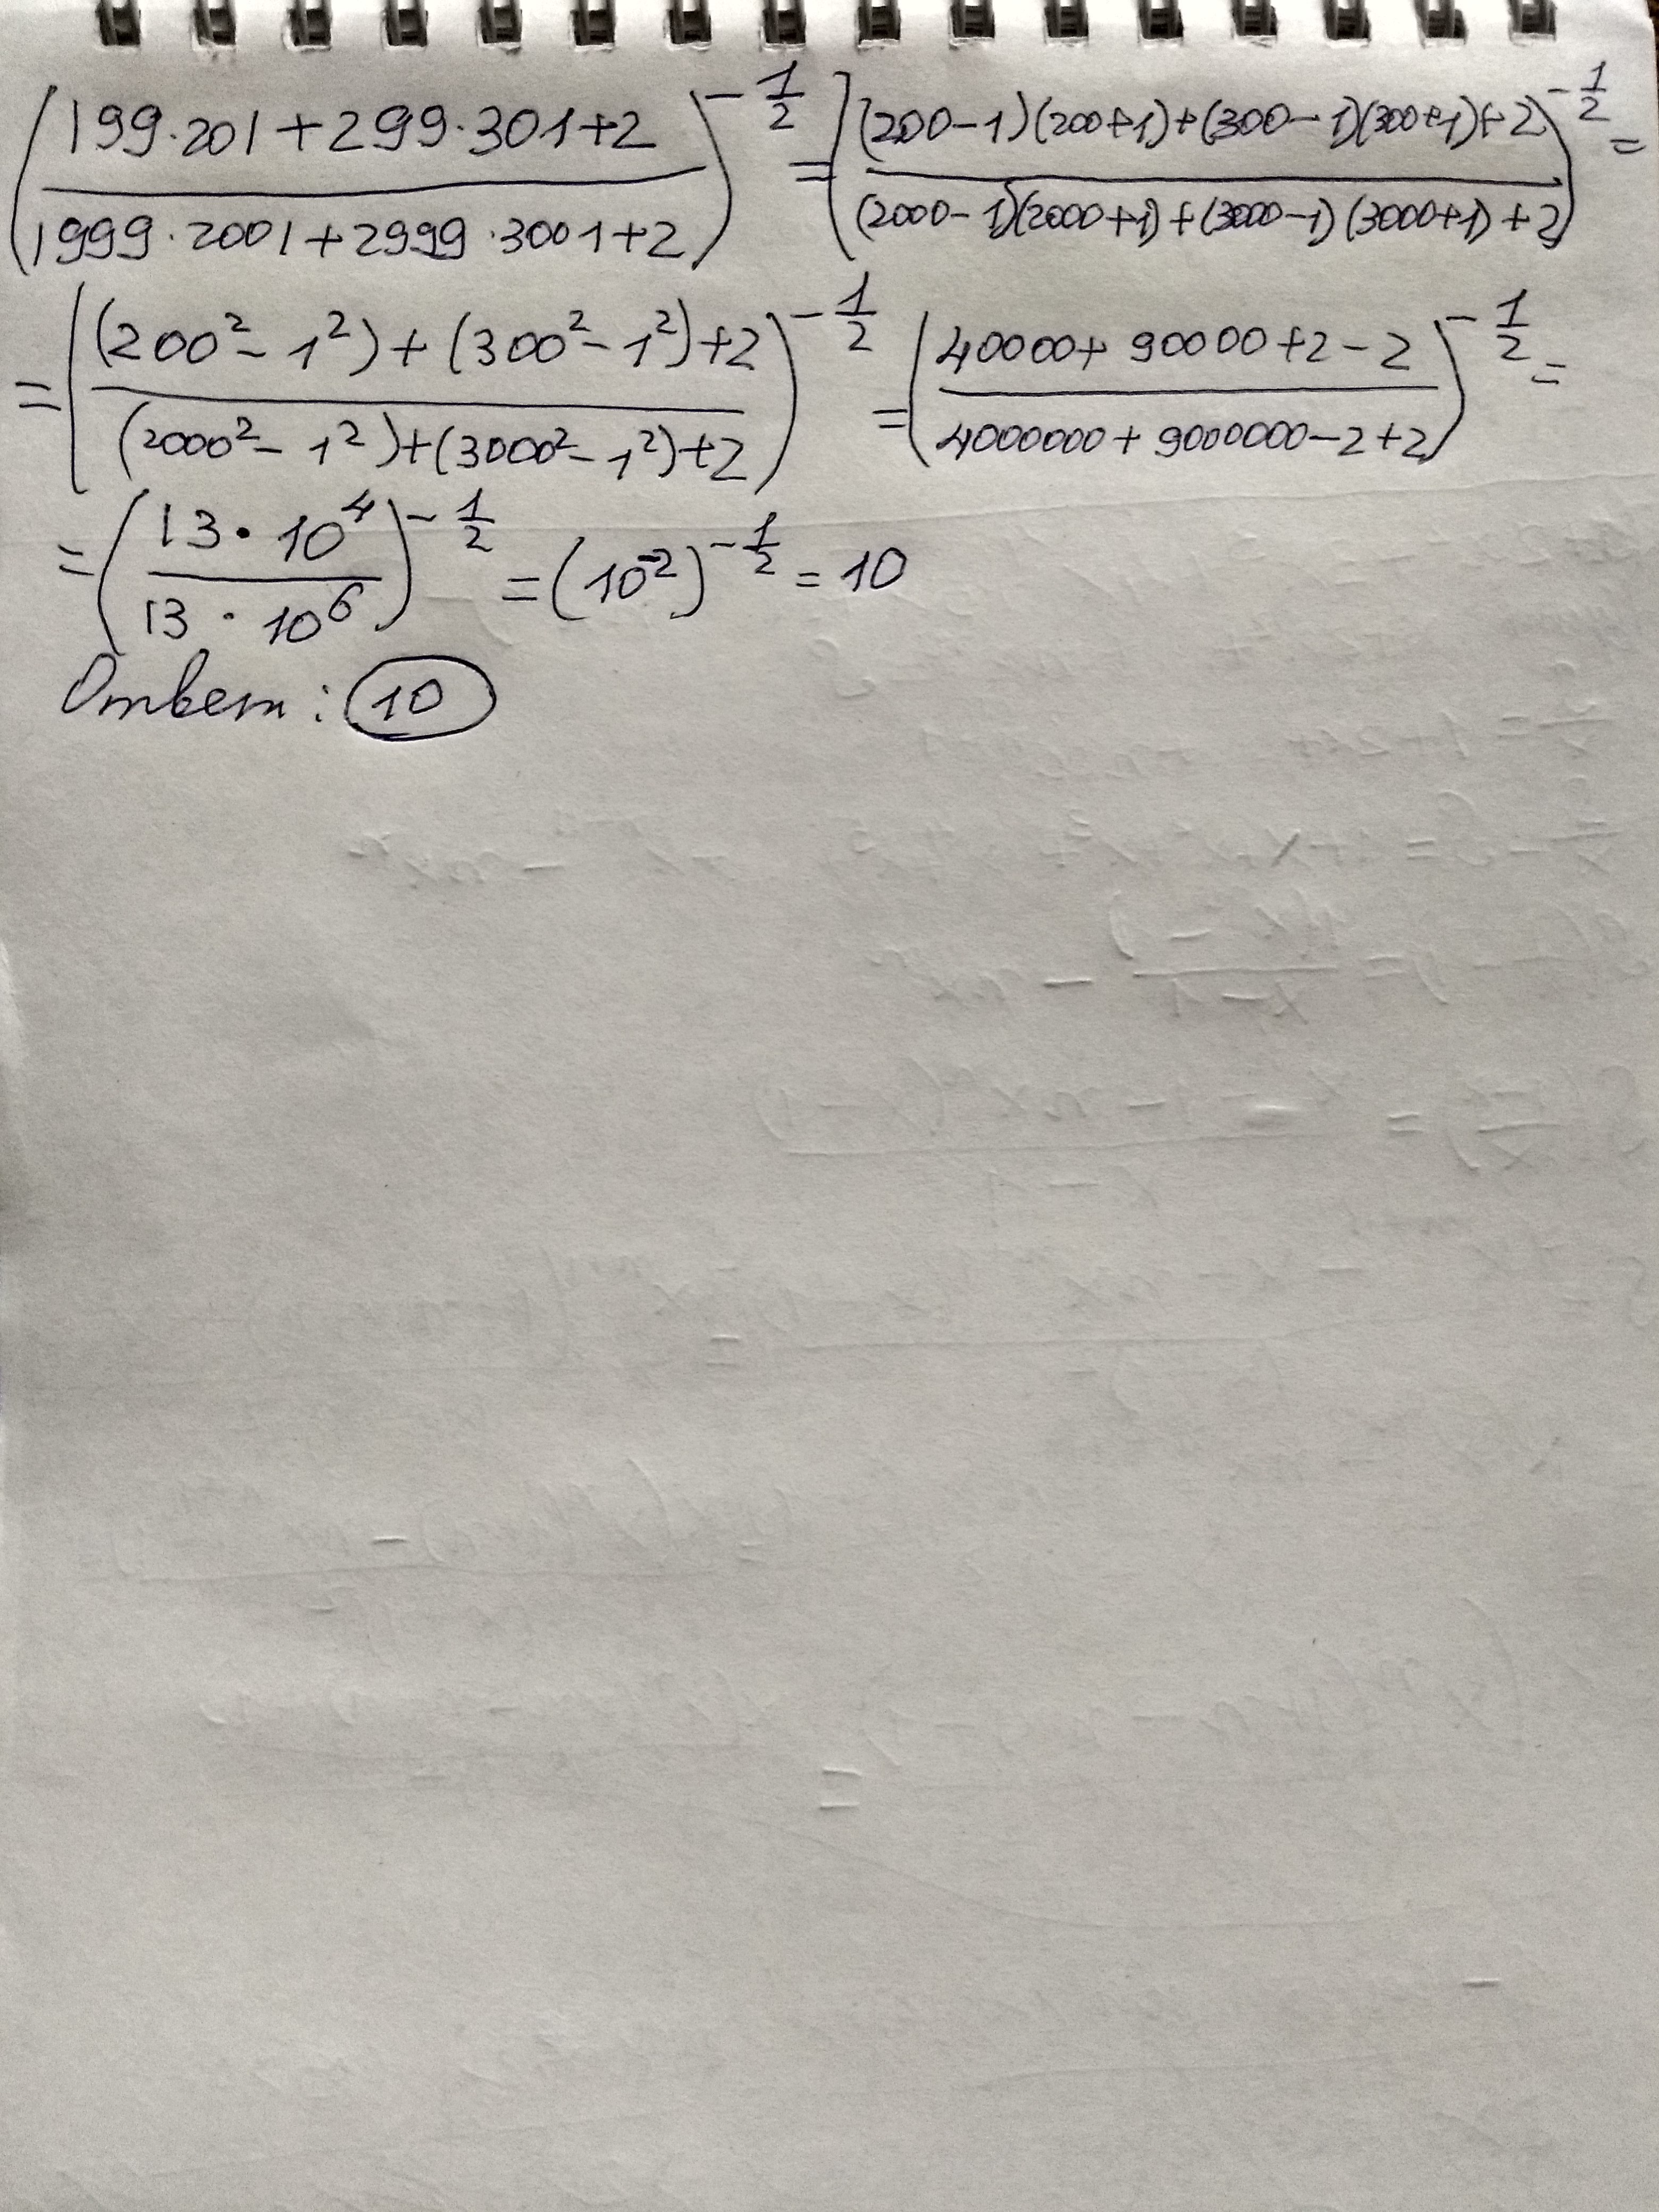 (199·201+299·301+2 / 1999·2001+2999·3001+2)^(-1/2) = ((200-1)(200+1)+(300-1)(300+1)+2 / (2000-1)(2000+1)+(3000-1)(3000+1)+2)^(-1/2) =
= ((200²-1²)+(300²-1²)+2 / (2000²-1²)+(3000²-1²)+2)^(-1/2) = (40000+90000+2-2 / 4000000+9000000-2+2)^(-1/2) =
= (13·10⁴ / 13·10⁶)^(-1/2) = (10⁻²)^(-1/2) = 10
Ответ: 10